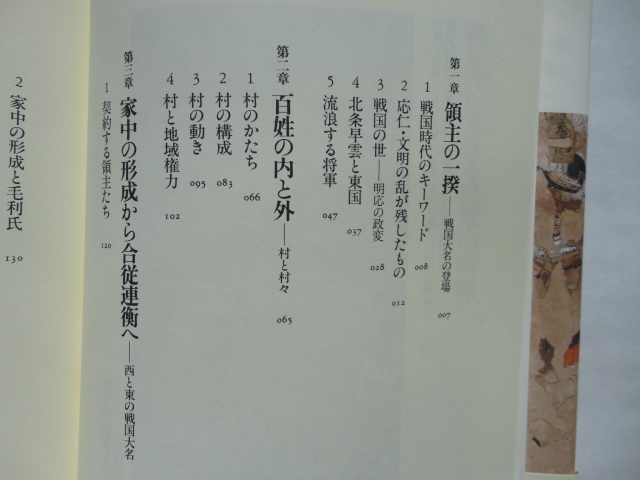 第一章 領主の一揆――戦国大名の登場 007
1 戦国時代のキーワード 008
2 応仁・文明の乱が残したもの 012
3 戦国の世――明応の政変 028
4 北条早雲と東国 037
5 流浪する将軍 047
第二章 百姓の内と外――村と村々 065
1 村のかたち 066
2 村の構成 083
3 村の動き 095
4 村と地域権力 102
第三章 家中の形成から合従連衡へ――西と東の戦国大名
1 契約する領主たち 120
2 家中の形成と毛利氏 130